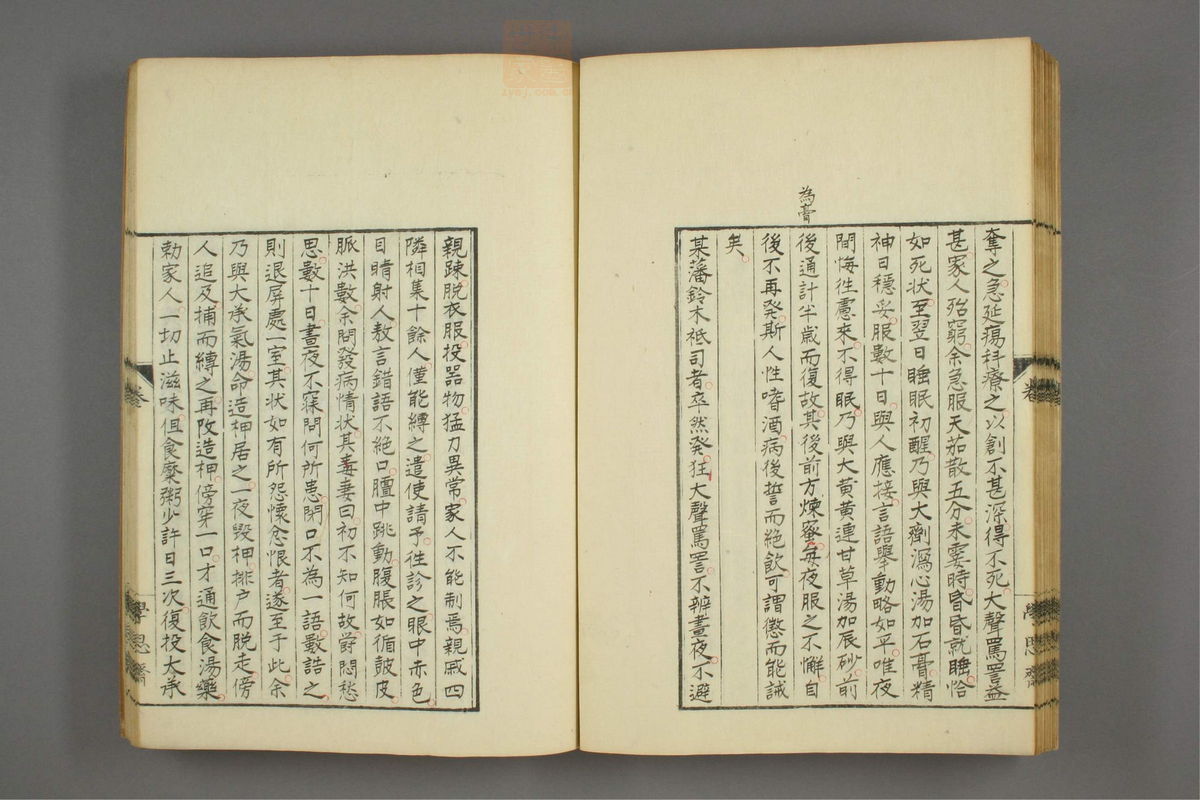 奪之急延瘍科療之以創不甚深得不死大聲罵詈益
甚家人殆窮余急服天茄散五分未霎時昏昏就睡恰
如死状至翌日睡眠初醒乃與大劑瀉心湯加石膏精
神日穩妥服數十日與人應接言語舉動略如平唯夜
間悔徃慮來不得眠乃與大黄黄連甘草湯加辰砂前
後通計半歲而復故其後前方煉蜜每夜服之不懈自
為膏
後不再発斯人性嗜酒病後誓而絶飲可謂懲而能誡
矣
某藩鈴木祗司者卒然発狂大聲罵詈不辨晝夜不避
學思齋
親疎脱衣服投器物猛力異常家人不能制焉親戚四
隣相集十餘人僅能縛之遣使請予徃診之眼中赤色
目睛射人敖言錯語不絶口膻中跳動腹脹如循皷皮
脈洪數余問發病情状其毒妻曰初不知何故欝悶愁
思數十日晝夜不寐問何所患閉口不為一語數詰之
則退屏處一室其状如有所怨懷忿恨者遂至于此余
乃與大承氣湯命造柙居之一夜毀柙排户而脱走傍
人追及捕而縛之再改造柙傍穿一口才通飲食湯藥
勅家人一切止滋味但食糜粥少許日三次復投大承
卷
學思齋
八